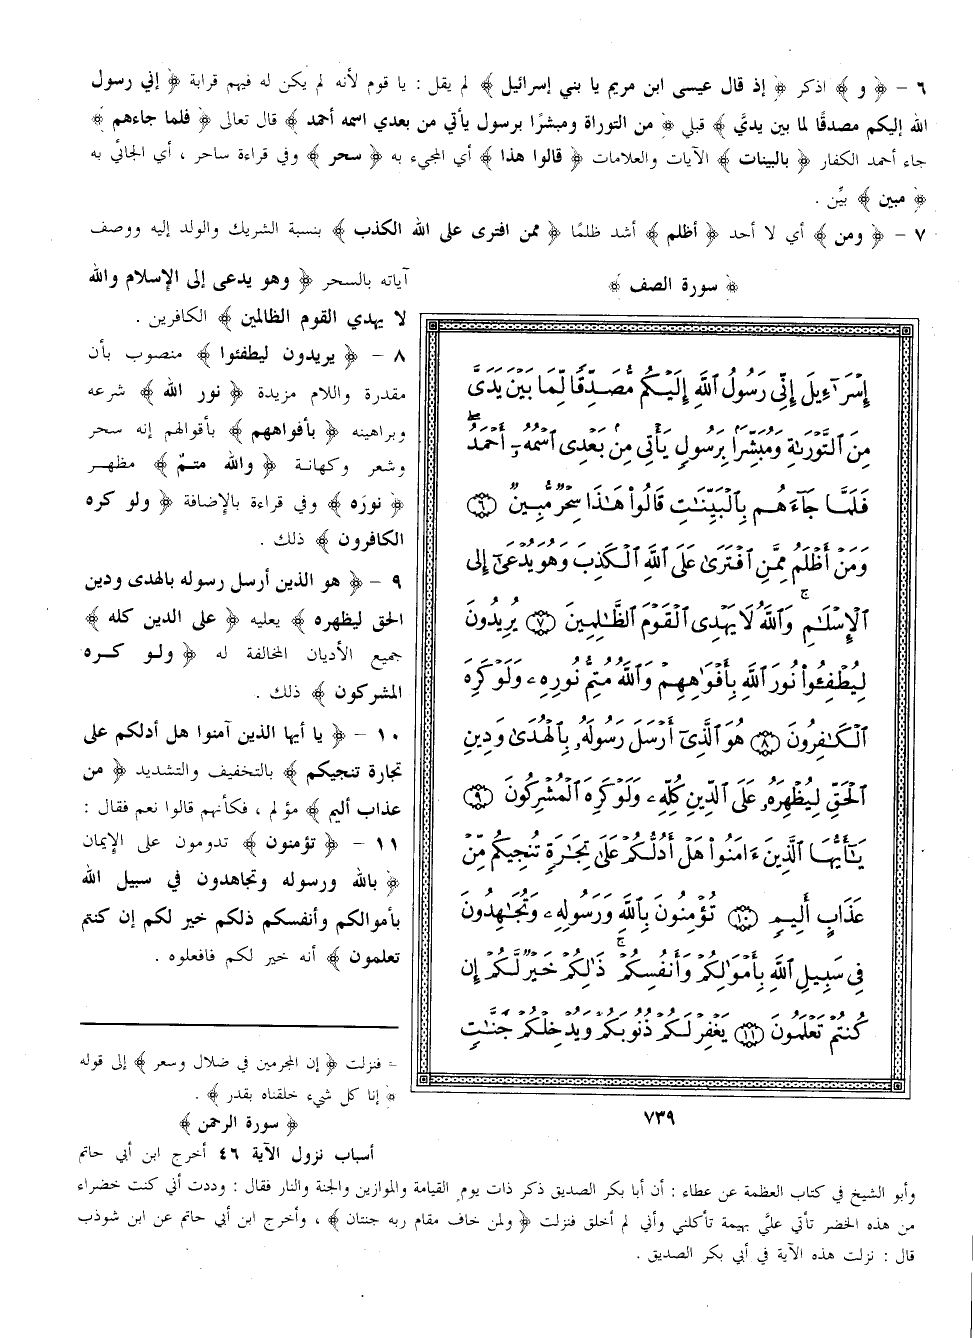 ٦ – ﴿ و ﴾ اذكر ﴿ إذ قال عيسى ابن مريم يا بني إسرائيل ﴾ لم يقل : يا قوم لأنه لم يكن له فيهم قرابة ﴿ إني رسول
الله إليكم مصدقًا لما بين يديَّ ﴾ قبلي ﴿ من التوراة ومبشرًا برسول يأتي من بعدي اسمه أحمد ﴾ قال تعالى ﴿ فلما جاءهم ﴾
جاء أحمد الكفار ﴿ بالبينات ﴾ الآيات والعلامات ﴿ قالوا هذا ﴾ أي المجيء به ﴿ سحر ﴾ وفي قراءة ساحر ، أي الجائي به
﴿ مبين ﴾ بيِّن .
٧ – ﴿ ومن ﴾ أي لا أحد ﴿ أظلم ﴾ أشد ظلمًا ﴿ ممن افترى على الله الكذب ﴾ بنسبة الشريك والولد إليه ووصف
آياته بالسحر ﴿ وهو يدعى إلى الإسلام والله
لا يهدي القوم الظالمين ﴾ الكافرين .
٨ – ﴿ يريدون ليطفئوا ﴾ منصوب بأن
مقدرة واللام مزيدة ﴿ نور الله ﴾ شرعه
وبراهينه ﴿ بأفواههم ﴾ بأقوالهم إنه سحر
وشعر وكهانة ﴿ والله متمٌ ﴾ مظهر
﴿ نورَه ﴾ وفي قراءة بالإضافة ﴿ ولو كره
الكافرون ﴾ ذلك .
٩ – ﴿ هو الذين أرسل رسوله بالهدى ودين
الحق ليظهره ﴾ يعليه ﴿ على الدين كله ﴾
جميع الأديان المخالفة له ﴿ ولو كره
المشركون ﴾ ذلك .
١٠ – ﴿ يا أيها الذين آمنوا هل أدلكم على
تجارة تنجيكم ﴾ بالتخفيف والتشديد ﴿ من
عذاب أليم ﴾ مؤلم ، فكأنهم قالوا نعم فقال :
١١ – ﴿ تؤمنون ﴾ تدومون على الإيمان
﴿ بالله ورسوله وتجاهدون في سبيل الله
بأموالكم وأنفسكم ذلكم خير لكم إن كنتم
تعلمون ﴾ أنه خير لكم فافعلوه .
﴿ سورة الصف ﴾
إِسْرَٰٓءِيلَ إِنِّى رَسُولُ ٱللَّهِ إِلَيْكُم مُّصَدِّقًا لِّمَا بَيْنَ يَدَىَّ
مِنَ ٱلتَّوْرَىٰةِ وَمُبَشِّرًۢا بِرَسُولٍ يَأْتِى مِنۢ بَعْدِى ٱسْمُهُۥٓ أَحْمَدُ ۖ
فَلَمَّا جَآءَهُم بِٱلْبَيِّنَٰتِ قَالُوا۟ هَٰذَا سِحْرٌ مُّبِينٌ ٦
وَمَنْ أَظْلَمُ مِمَّنِ ٱفْتَرَىٰ عَلَى ٱللَّهِ ٱلْكَذِبَ وَهُوَ يُدْعَىٰٓ إِلَى
ٱلْإِسْلَٰمِ ۚ وَٱللَّهُ لَا يَهْدِى ٱلْقَوْمَ ٱلظَّٰلِمِينَ ٧ يُرِيدُونَ
لِيُطْفِـُٔوا۟ نُورَ ٱللَّهِ بِأَفْوَٰهِهِمْ وَٱللَّهُ مُتِمُّ نُورِهِۦ وَلَوْ كَرِهَ
ٱلْكَٰفِرُونَ ٨ هُوَ ٱلَّذِىٓ أَرْسَلَ رَسُولَهُۥ بِٱلْهُدَىٰ وَدِينِ
ٱلْحَقِّ لِيُظْهِرَهُۥ عَلَى ٱلدِّينِ كُلِّهِۦ وَلَوْ كَرِهَ ٱلْمُشْرِكُونَ ٩
يَٰٓأَيُّهَا ٱلَّذِينَ ءَامَنُوا۟ هَلْ أَدُلُّكُمْ عَلَىٰ تِجَٰرَةٍ تُنجِيكُم مِّنْ
عَذَابٍ أَلِيمٍ ١٠ تُؤْمِنُونَ بِٱللَّهِ وَرَسُولِهِۦ وَتُجَٰهِدُونَ
فِى سَبِيلِ ٱللَّهِ بِأَمْوَٰلِكُمْ وَأَنفُسِكُمْ ۚ ذَٰلِكُمْ خَيْرٌ لَّكُمْ إِن
كُنتُمْ تَعْلَمُونَ ١١ يَغْفِرْ لَكُمْ ذُنُوبَكُمْ وَيُدْخِلْكُمْ جَنَّٰتٍ
٧٣٩
= فنزلت ﴿ إن المجرمين في ضلال وسعر ﴾ إلى قوله
﴿ إنا كل شيء خلقناه بقدر ﴾ .
﴿ سورة الرحمن ﴾
أسباب نزول الآية ٤٦ أخرج ابن أبي حاتم
وأبو الشيخ في كتاب العظمة عن عطاء : أن أبا بكر الصديق ذكر ذات يوم القيامة والموازين والجنة والنار فقال : وددت أني كنت خضراء
من هذه الخضر تأتي عليَّ بهيمة تأكلني وأني لم أخلق فنزلت ﴿ ولمن خاف مقام ربه جنتان ﴾ ، وأخرج ابن أبي حاتم عن ابن شوذب
قال : نزلت هذه الآية في أبي بكر الصديق .